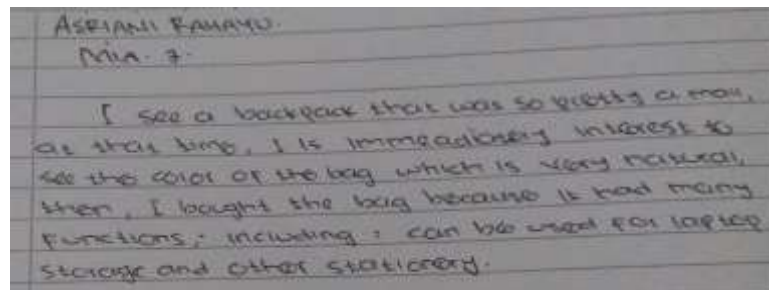 ASRIANI RAHAYU.
MIA. 7.
I see a backpack that was so pretty a mall,
at that time, I is immeadiately interest to
see the color of the bag which is very natural,
then, I bought the bag because it had many
functions, including : can be used for laptop
storage and other stationery.